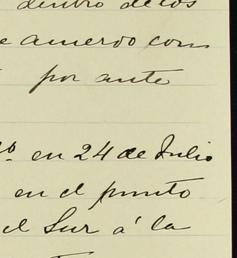 dentro de los
de acuerdo con
por ante
en 24 de Julio
en el punto
el Sur á la